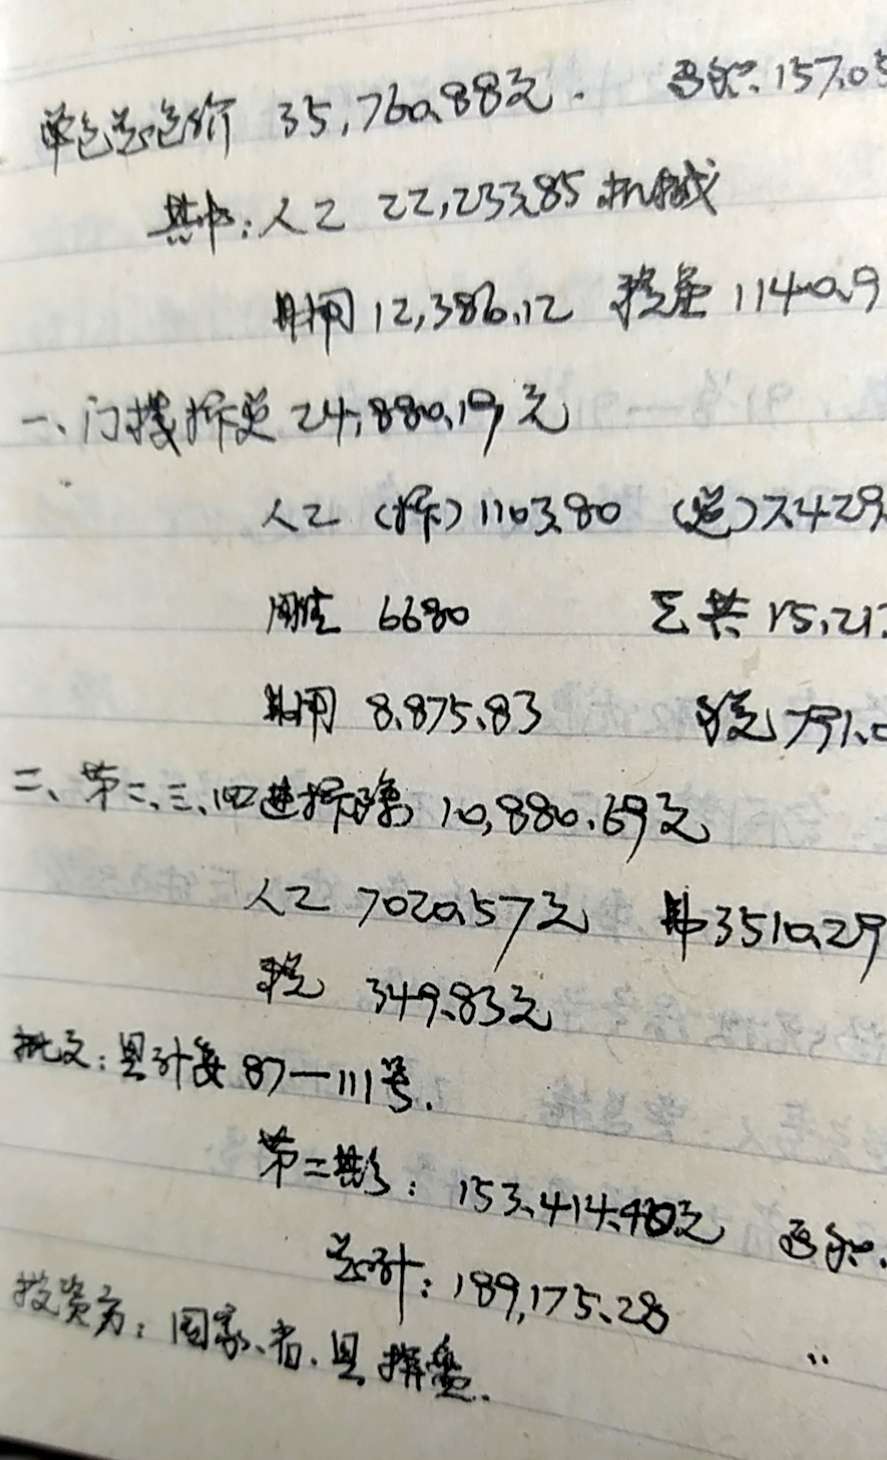 单包总包价 35,760.88元. 157.05
其中:人工 22,233.85 机械
费用 12,386.12 税金 1140.9
一、门楼拆 24,880.19元
人工(拆)1103.80 ( )7429
6680 共 15,21
费用 8,875.83 税 791.0
二、第二、三、四进拆 10,880.69元
人工 7020.57元 费 3510.29
税 349.83元
批文:县计委 87—111号.
第二期: 153,414.40元
总计: 189,175.28
投资方:国家、省、县